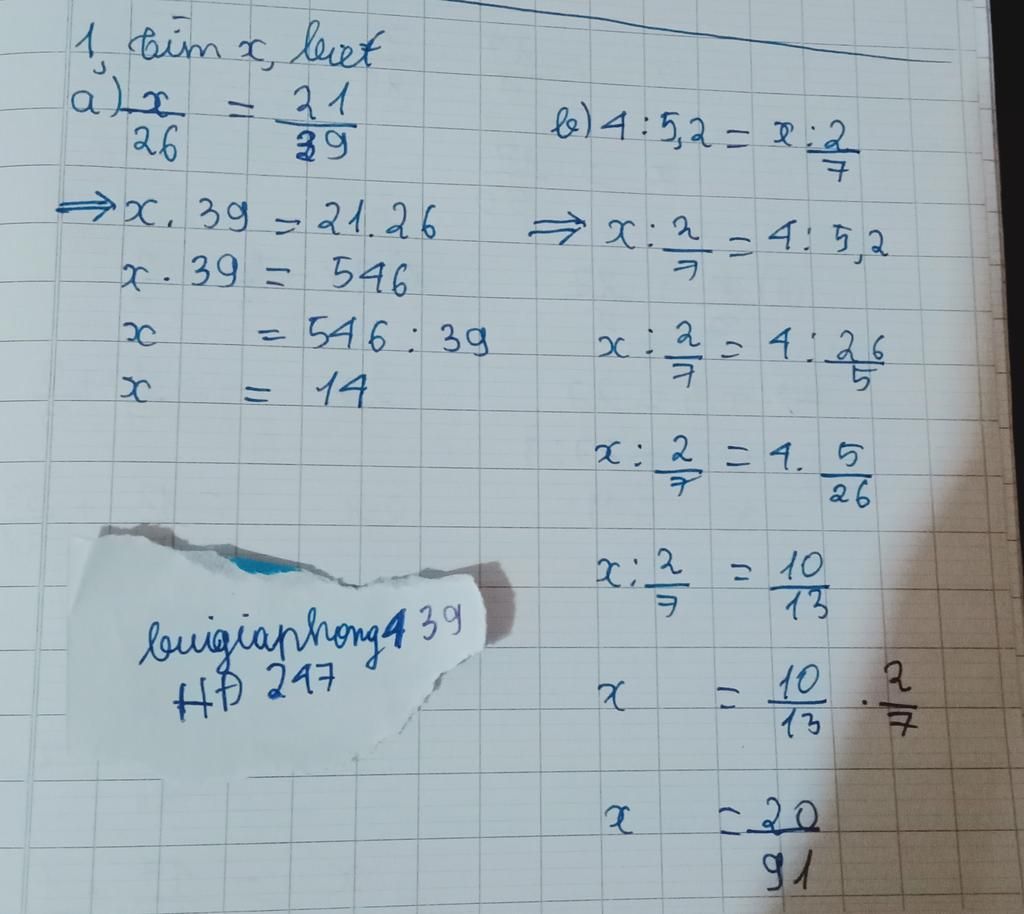 1, tìm x, biết
a) x/26 = 21/39
=> x . 39 = 21.26
x . 39 = 546
x = 546 : 39
x = 14
b) 4 : 5,2 = x : 2/7
=> x : 2/7 = 4 : 5,2
x : 2/7 = 4 : 26/5
x : 2/7 = 4 . 5/26
x : 2/7 = 10/13
x = 10/13 . 2/7
x = 20/91
buigiaphong439
HĐ 247